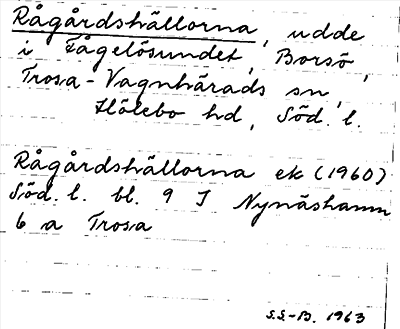 Rågårdshällorna, udde
i Fågelösundet, Borsö,
Trosa-Vagnhärads sn,
Hölebo hd, Söd. l.
Rågårdshällorna ek (1960)
Söd. l. bl. 9 I Nynäshamn
6 a Trosa
S.S-B. 1963